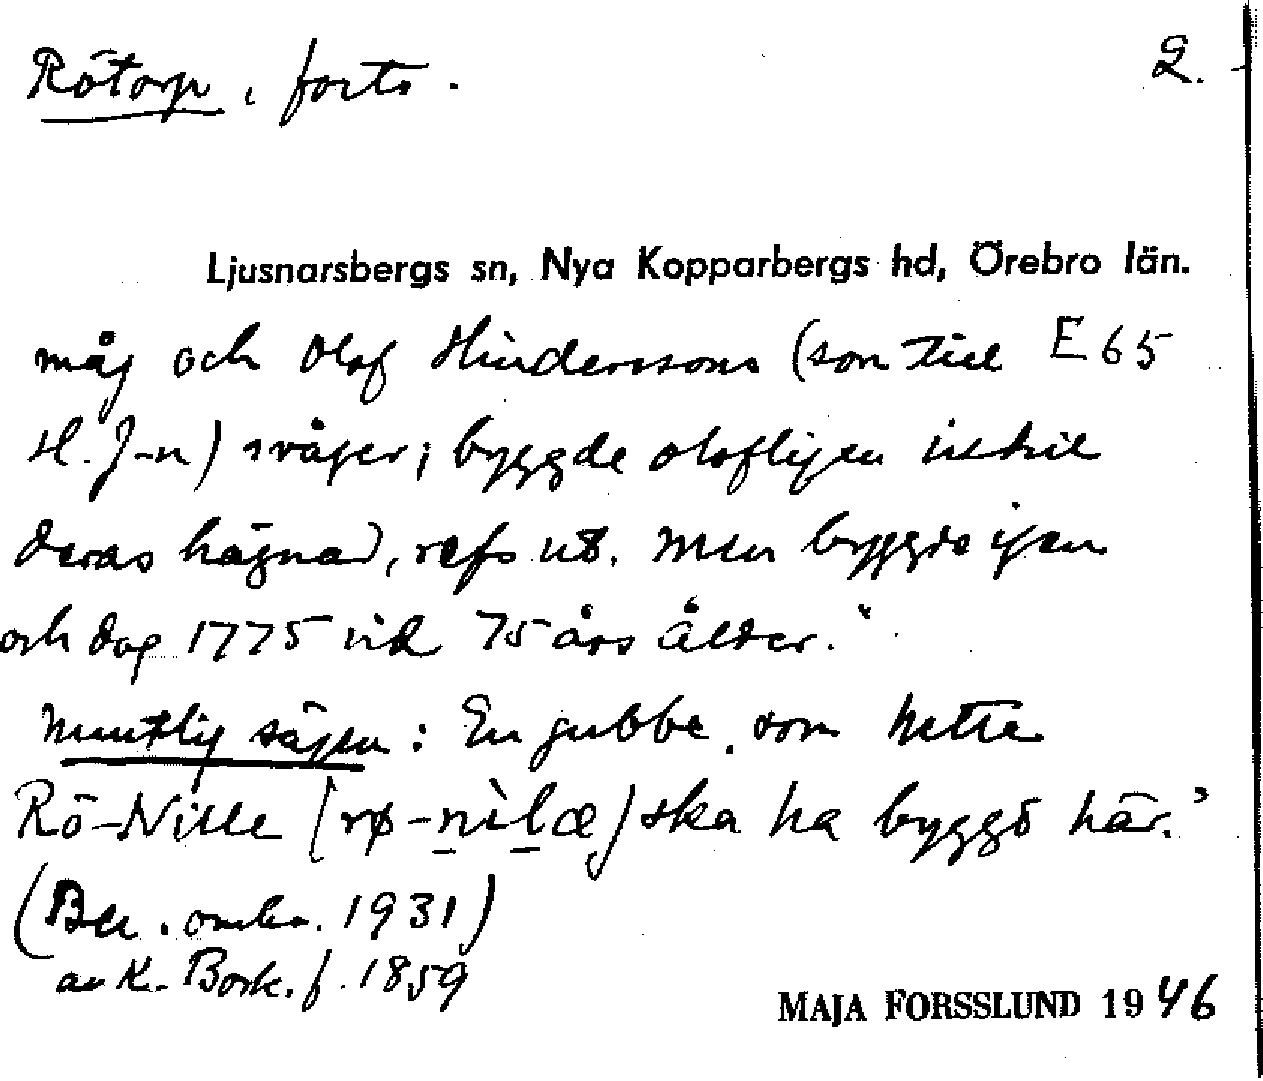 Rötorp, forts. 2.
Ljusnarsbergs sn, Nya Kopparbergs hd, Örebro län.
måg och Olof Hinderssons (son till E65
H. J-n) svåger; byggde olofligen
deras hägnad, refs ut. Men byggde igen
och dog 1775 vid 75 års ålder."
Muntlig sägen: En gubbe, som hette
Rö-Nille [rø-nìlæ] ska ha byggt här."
(Ber. omkr. 1931)
av K. Bork. f. 1859
MAJA FORSSLUND 1946